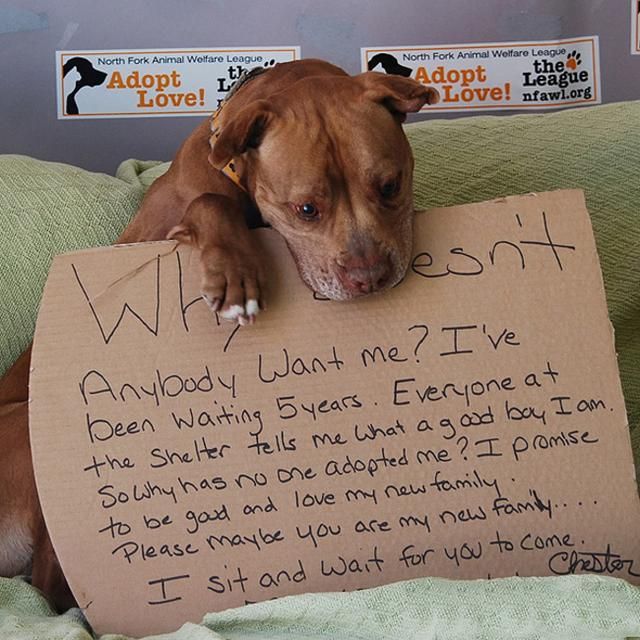 North Fork Animal Welfare League
Adopt
Love!
the
North Fork Animal Welfare League
Adopt
Love!
the
League
nfawl.org
esn't
Anybody Want me? I've
been waiting 5 years. Everyone at
the Shelter tells me what a good boy I am.
So why has no one adopted me? I promise
to be good and love my new family.
Please maybe you are my new family....
I sit and wait for you to come.
Chester